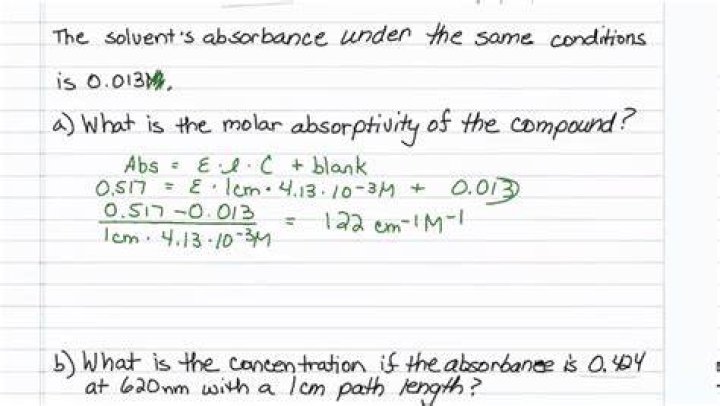 The solvent's absorbance under the same conditions
is 0.013
a) What is the molar absorptivity of the compound?
Abs = ε·l·C + blank
0.517 = ε·1cm·4.13·10-3M + 0.013
0.517-0.013
= 122 cm-1M-1
1cm·4.13·10-3M
b) What is the concentration if the absorbance is 0.424
at 620nm with a 1cm path length?